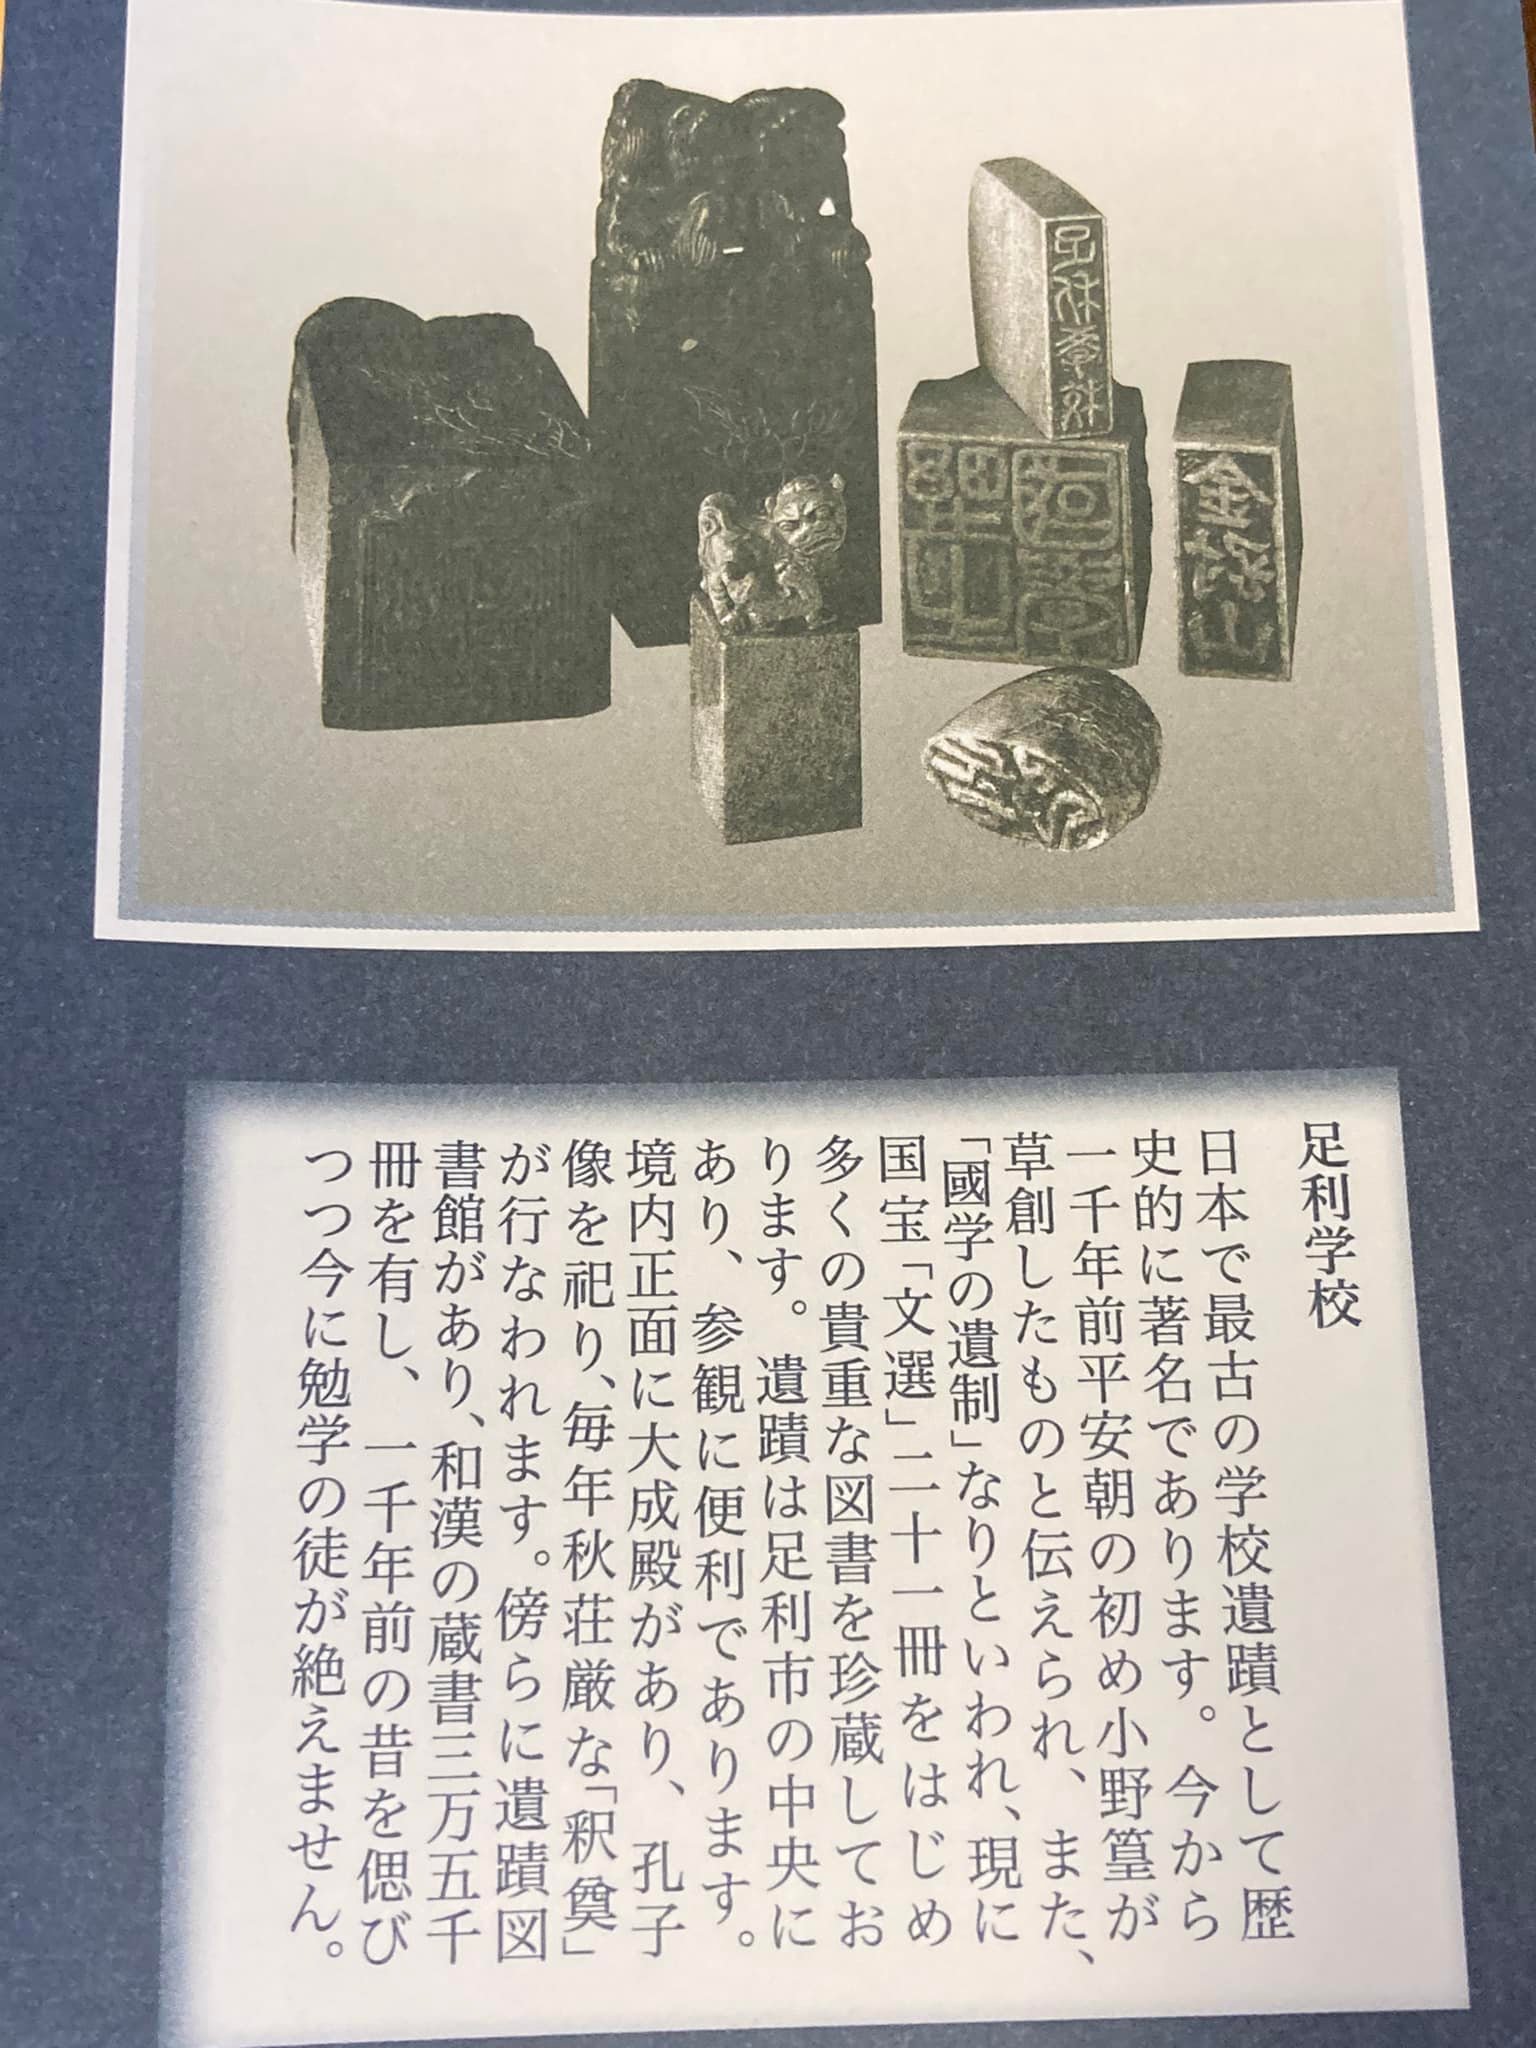 金
山
足利学校
日本で最古の学校遺蹟として歴
史的に著名であります。今から
一千年前平安朝の初め小野篁が
草創したものと伝えられ、また、
「國学の遺制」なりといわれ、現に
国宝「文選」二十一冊をはじめ
多くの貴重な図書を珍蔵してお
ります。遺蹟は足利市の中央に
あり、参観に便利であります。
境内正面に大成殿があり、孔子
像を祀り、毎年秋荘厳な「釈奠」
が行なわれます。傍らに遺蹟図
書館があり、和漢の蔵書三万五千
冊を有し、一千年前の昔を偲び
つつ今に勉学の徒が絶えません。